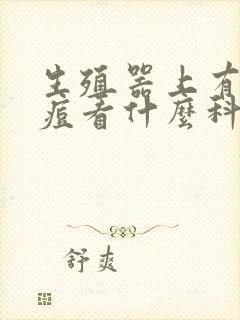 生殖器上有
痘看什麼科
舒爽